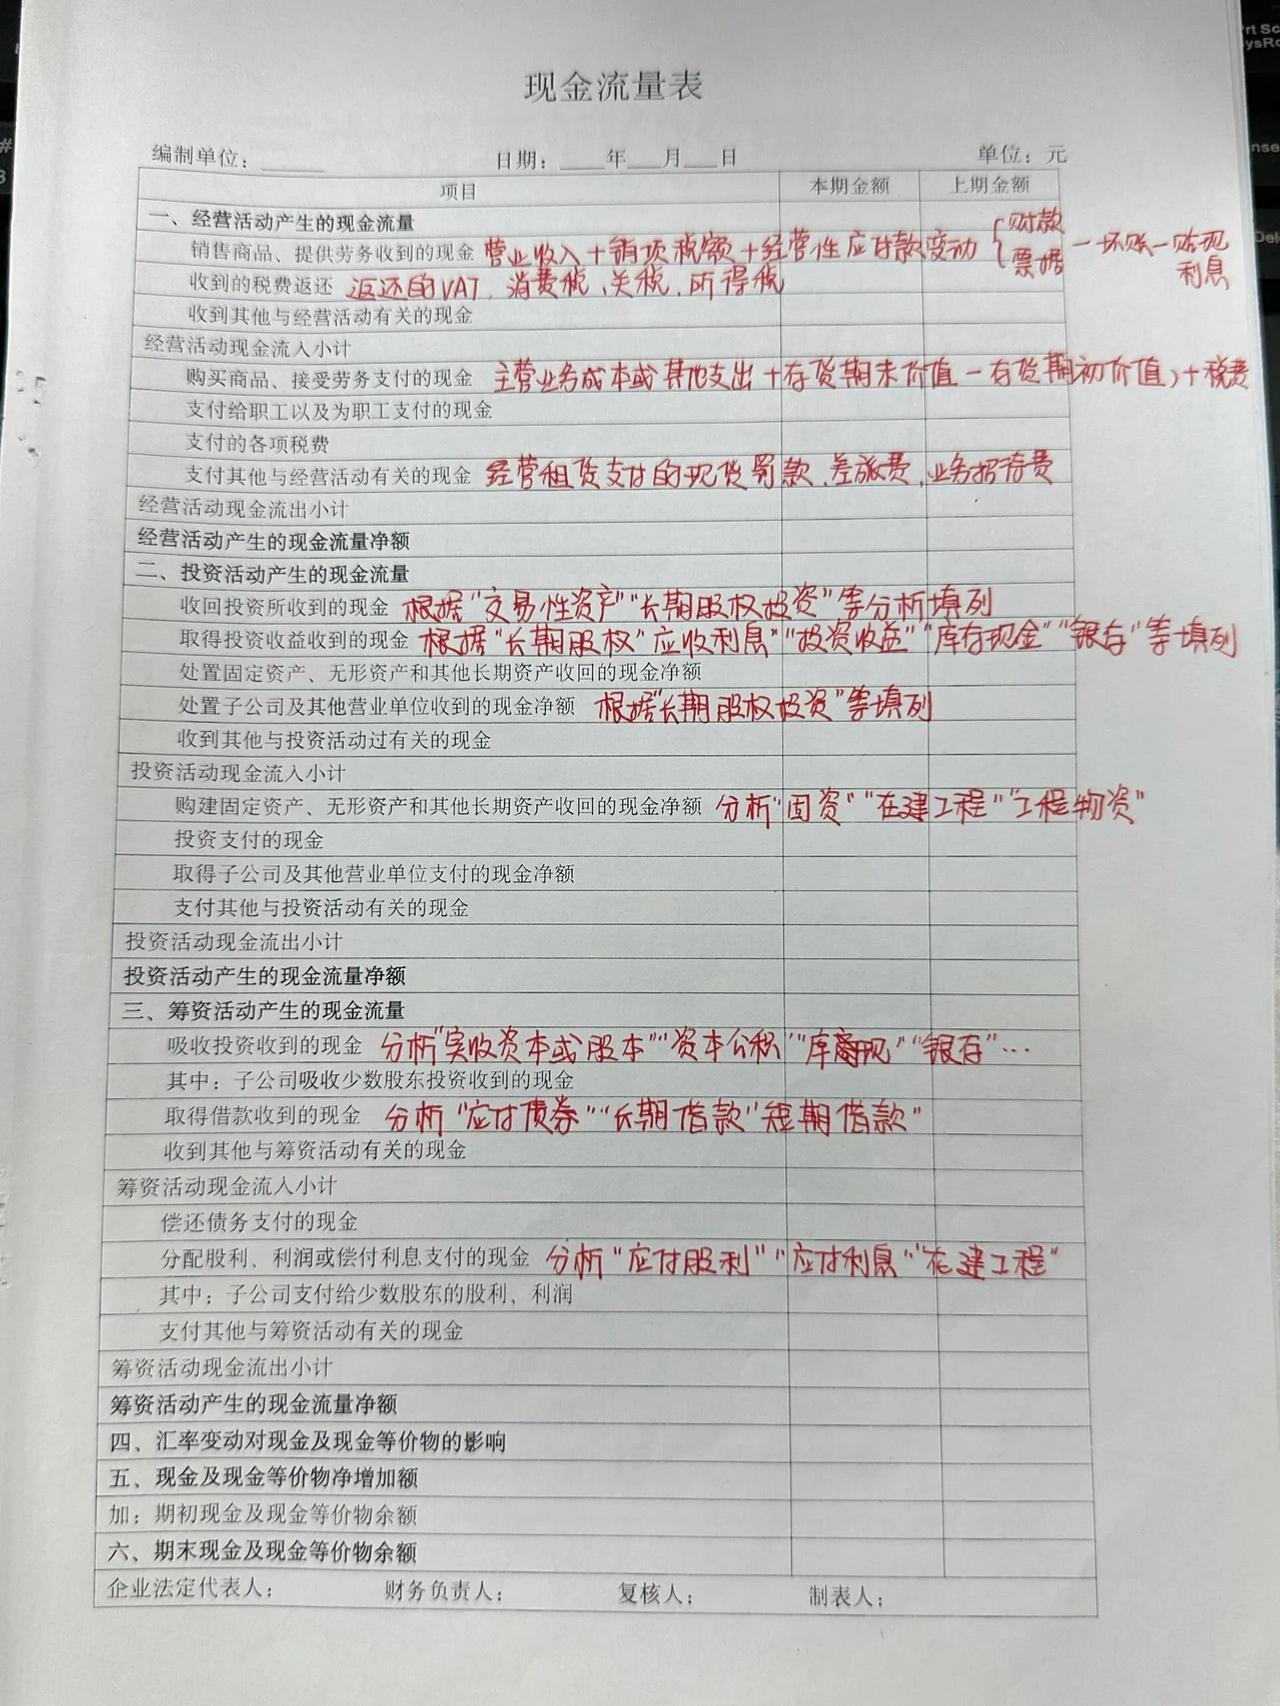 现金流量表
编制单位：____ 日期：____年___月___日 单位：元
项目 本期金额 上期金额
一、经营活动产生的现金流量
销售商品、提供劳务收到的现金 营业收入+销项税额+经营性应付款变动 { 款 票据 -坏账-贴现利息
收到的税费返还 返还的VAT、消费税、关税、所得税
收到其他与经营活动有关的现金
经营活动现金流入小计
购买商品、接受劳务支付的现金 主营业务成本或其他支出+存货期末价值-存货期初价值)+税费
支付给职工以及为职工支付的现金
支付的各项税费
支付其他与经营活动有关的现金 经营租赁支付的现 罚款、差旅费、业务招待费
经营活动现金流出小计
经营活动产生的现金流量净额
二、投资活动产生的现金流量
收回投资所收到的现金 根据"交易性资产""长期股权投资"等分析填列
取得投资收益收到的现金 根据"长期股权"应收利息""投资收益""库存现金""银存"等填列
处置固定资产、无形资产和其他长期资产收回的现金净额
处置子公司及其他营业单位收到的现金净额 根据"长期股权投资"等填列
收到其他与投资活动过有关的现金
投资活动现金流入小计
购建固定资产、无形资产和其他长期资产收回的现金净额 分析"固资""在建工程""工程物资"
投资支付的现金
取得子公司及其他营业单位支付的现金净额
支付其他与投资活动有关的现金
投资活动现金流出小计
投资活动产生的现金流量净额
三、筹资活动产生的现金流量
吸收投资收到的现金 分析"实收资本或股本""资本公积""库现""银存"…
其中：子公司吸收少数股东投资收到的现金
取得借款收到的现金 分析"应付债券""长期借款"短期借款"
收到其他与筹资活动有关的现金
筹资活动现金流入小计
偿还债务支付的现金
分配股利、利润或偿付利息支付的现金 分析"应付股利""应付利息""在建工程"
其中：子公司支付给少数股东的股利、利润
支付其他与筹资活动有关的现金
筹资活动现金流出小计
筹资活动产生的现金流量净额
四、汇率变动对现金及现金等价物的影响
五、现金及现金等价物净增加额
加：期初现金及现金等价物余额
六、期末现金及现金等价物余额
企业法定代表人： 财务负责人： 复核人： 制表人：